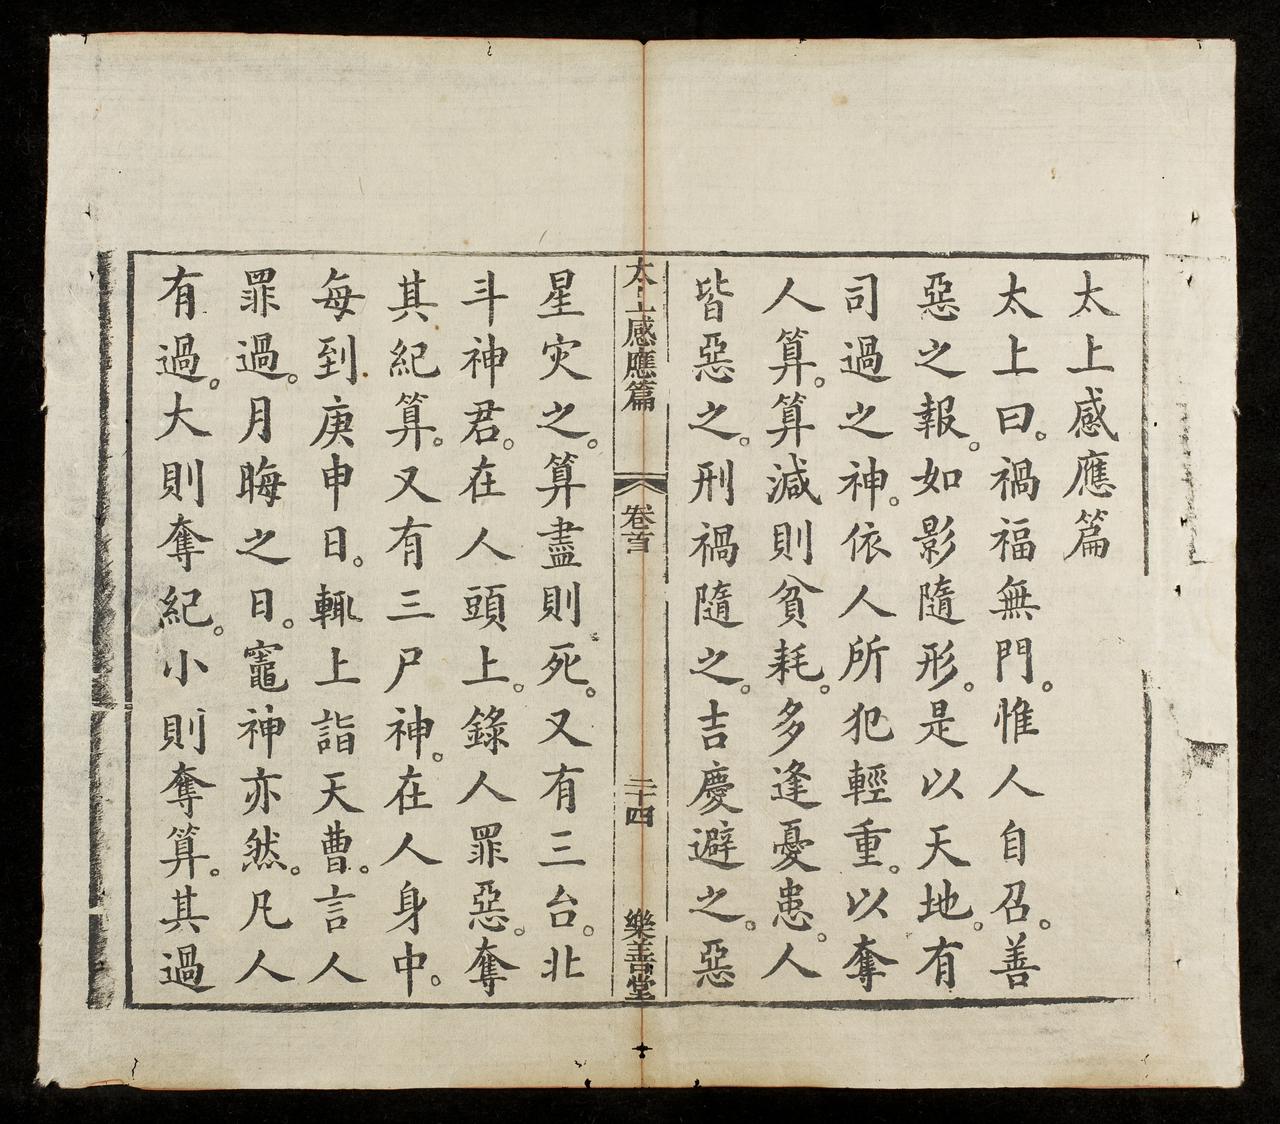 太上感應篇
太上曰。禍福無門。惟人自召。善
惡之報。如影隨形。是以天地。有
司過之神。依人所犯輕重。以奪
人算。算減則貧耗。多逢憂患。人
皆惡之。刑禍隨之。吉慶避之。惡
太上感應篇
卷首
二十四
樂善堂
星灾之。算盡則死。又有三台。北
斗神君。在人頭上。錄人罪惡。奪
其紀算。又有三尸神。在人身中。
每到庚申日。輒上詣天曹。言人
罪過。月晦之日。竈神亦然。凡人
有過。大則奪紀。小則奪算。其過